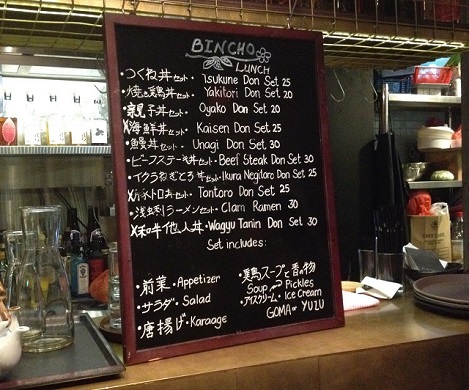 BINCHO
LUNCH
・つくね丼セット・ Tsukune Don Set 25
・焼き鳥丼セット・ Yakitori Don Set 20
・親子丼セット・ Oyako Don Set 20
X海鮮丼セット・ Kaisen Don Set 25
・鰻丼セット・ Unagi Don Set 30
・ビーフステーキ丼セット・Beef Steak Don Set 30
・イクラねぎとろ丼セット・Ikura Negitoro Don Set 25
X豚トロ丼セット・ Tontoro Don Set 25
・浅蜊ラーメンセット・Clam Ramen 30
X和牛他人丼・Wagyu Tanin Don Set 30
Set includes:
・前菜・Appetizer
・サラダ・Salad
・唐揚げ・Karaage
・鶏スープと香の物
Soup Pickles
・アイスクリーム・Ice Cream
GOMA or YUZU